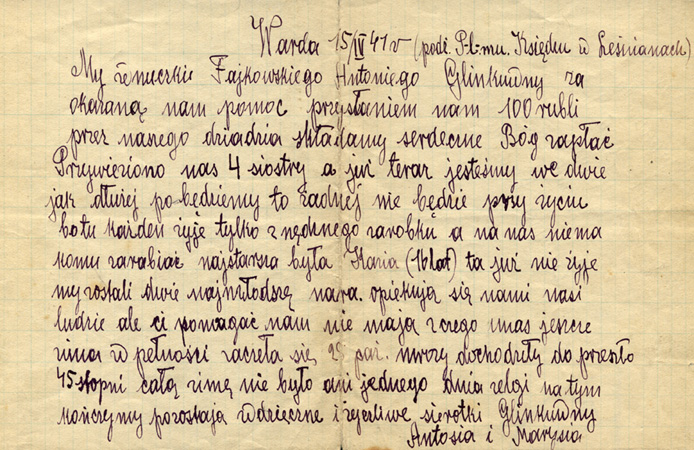 Warda 15/IV 41 r (podz. P-l. mu. Księdzu w Leśnianach)
My wnuczki Fajkowskiego Antoniego Glinkuwny za
okazaną nam pomoc przysłaniem nam 100 rubli
przez naszego dziadzia składamy serdeczne Bóg zapłać
Przywieziono nas 4 siostry a już teraz jesteśmy we dwie
jak dłużej pobędziemy to żadnej nie będzie przy życiu
bo tu każden żyje tylko z nędznego zarobku a na nas niema
komu zarabiać najstarsza była (16 lat) ta już nie żyje
my zostali dwie najmłodsze opiekują się nami nasi
ludzie ale ci pomagać nam nie mają z czego u nas jeszcze
zima w pełności zaczeła się 25 paź. mrozy dochodziły do przeszło
45 stopni całą zimę nie było ani jednego dnia na tym
kończymy pozostają wdzięczne i życzliwe sierotki Glinkuwny
Antosia i Marysia